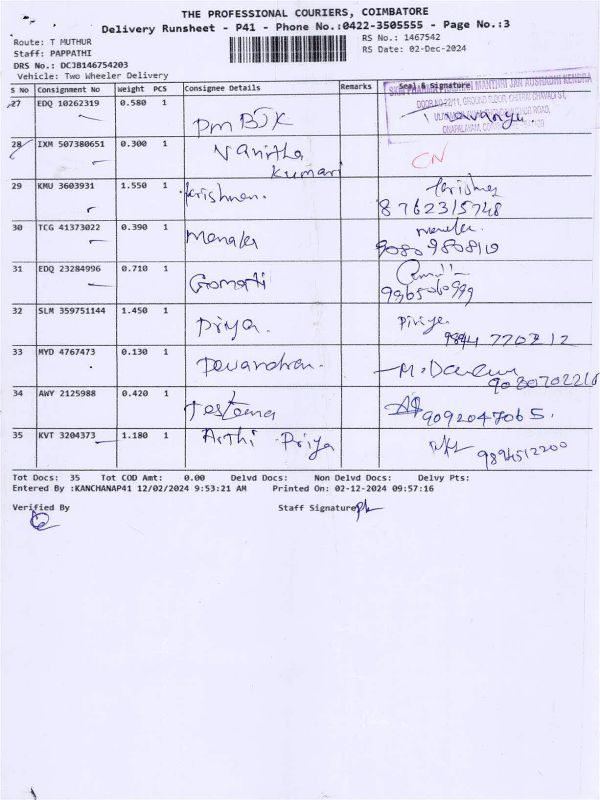 THE PROFESSIONAL COURIERS, COIMBATORE
Delivery Runsheet - P41 - Phone No.:0422-3505555 - Page No.:3
Route: T MUTHUR
RS No.: 1467542
Staff: PAPPATHI
RS Date: 02-Dec-2024
DRS No.: DCJB146754203
Vehicle: Two Wheeler Delivery
S No Consignment No Weight PCS Consignee Details Remarks Seal & Signature
27 EDQ 10262319 0.580 1 PMBJK
28 IXM 507380651 0.300 1 Vanitha Kumari CN
29 KMU 3603931 1.550 1 krishnan. 8762315748
30 TCG 41373022 0.390 1 Menaka 9080980810
31 EDQ 23284996 0.710 1 Gomati 9965060999
32 SLM 359751144 1.450 1 Priya. 9894 770212
33 MYD 4767473 0.130 1 9080702216
34 AWY 2125988 0.420 1 9092047065.
35 KVT 3204373 1.180 1 Arthi Priya 9894512200
Tot Docs: 35 Tot COD Amt: 0.00 Delvd Docs: Non Delvd Docs: Delvy Pts:
Entered By :KANCHANAP41 12/02/2024 9:53:21 AM Printed On: 02-12-2024 09:57:16
Verified By Staff Signature